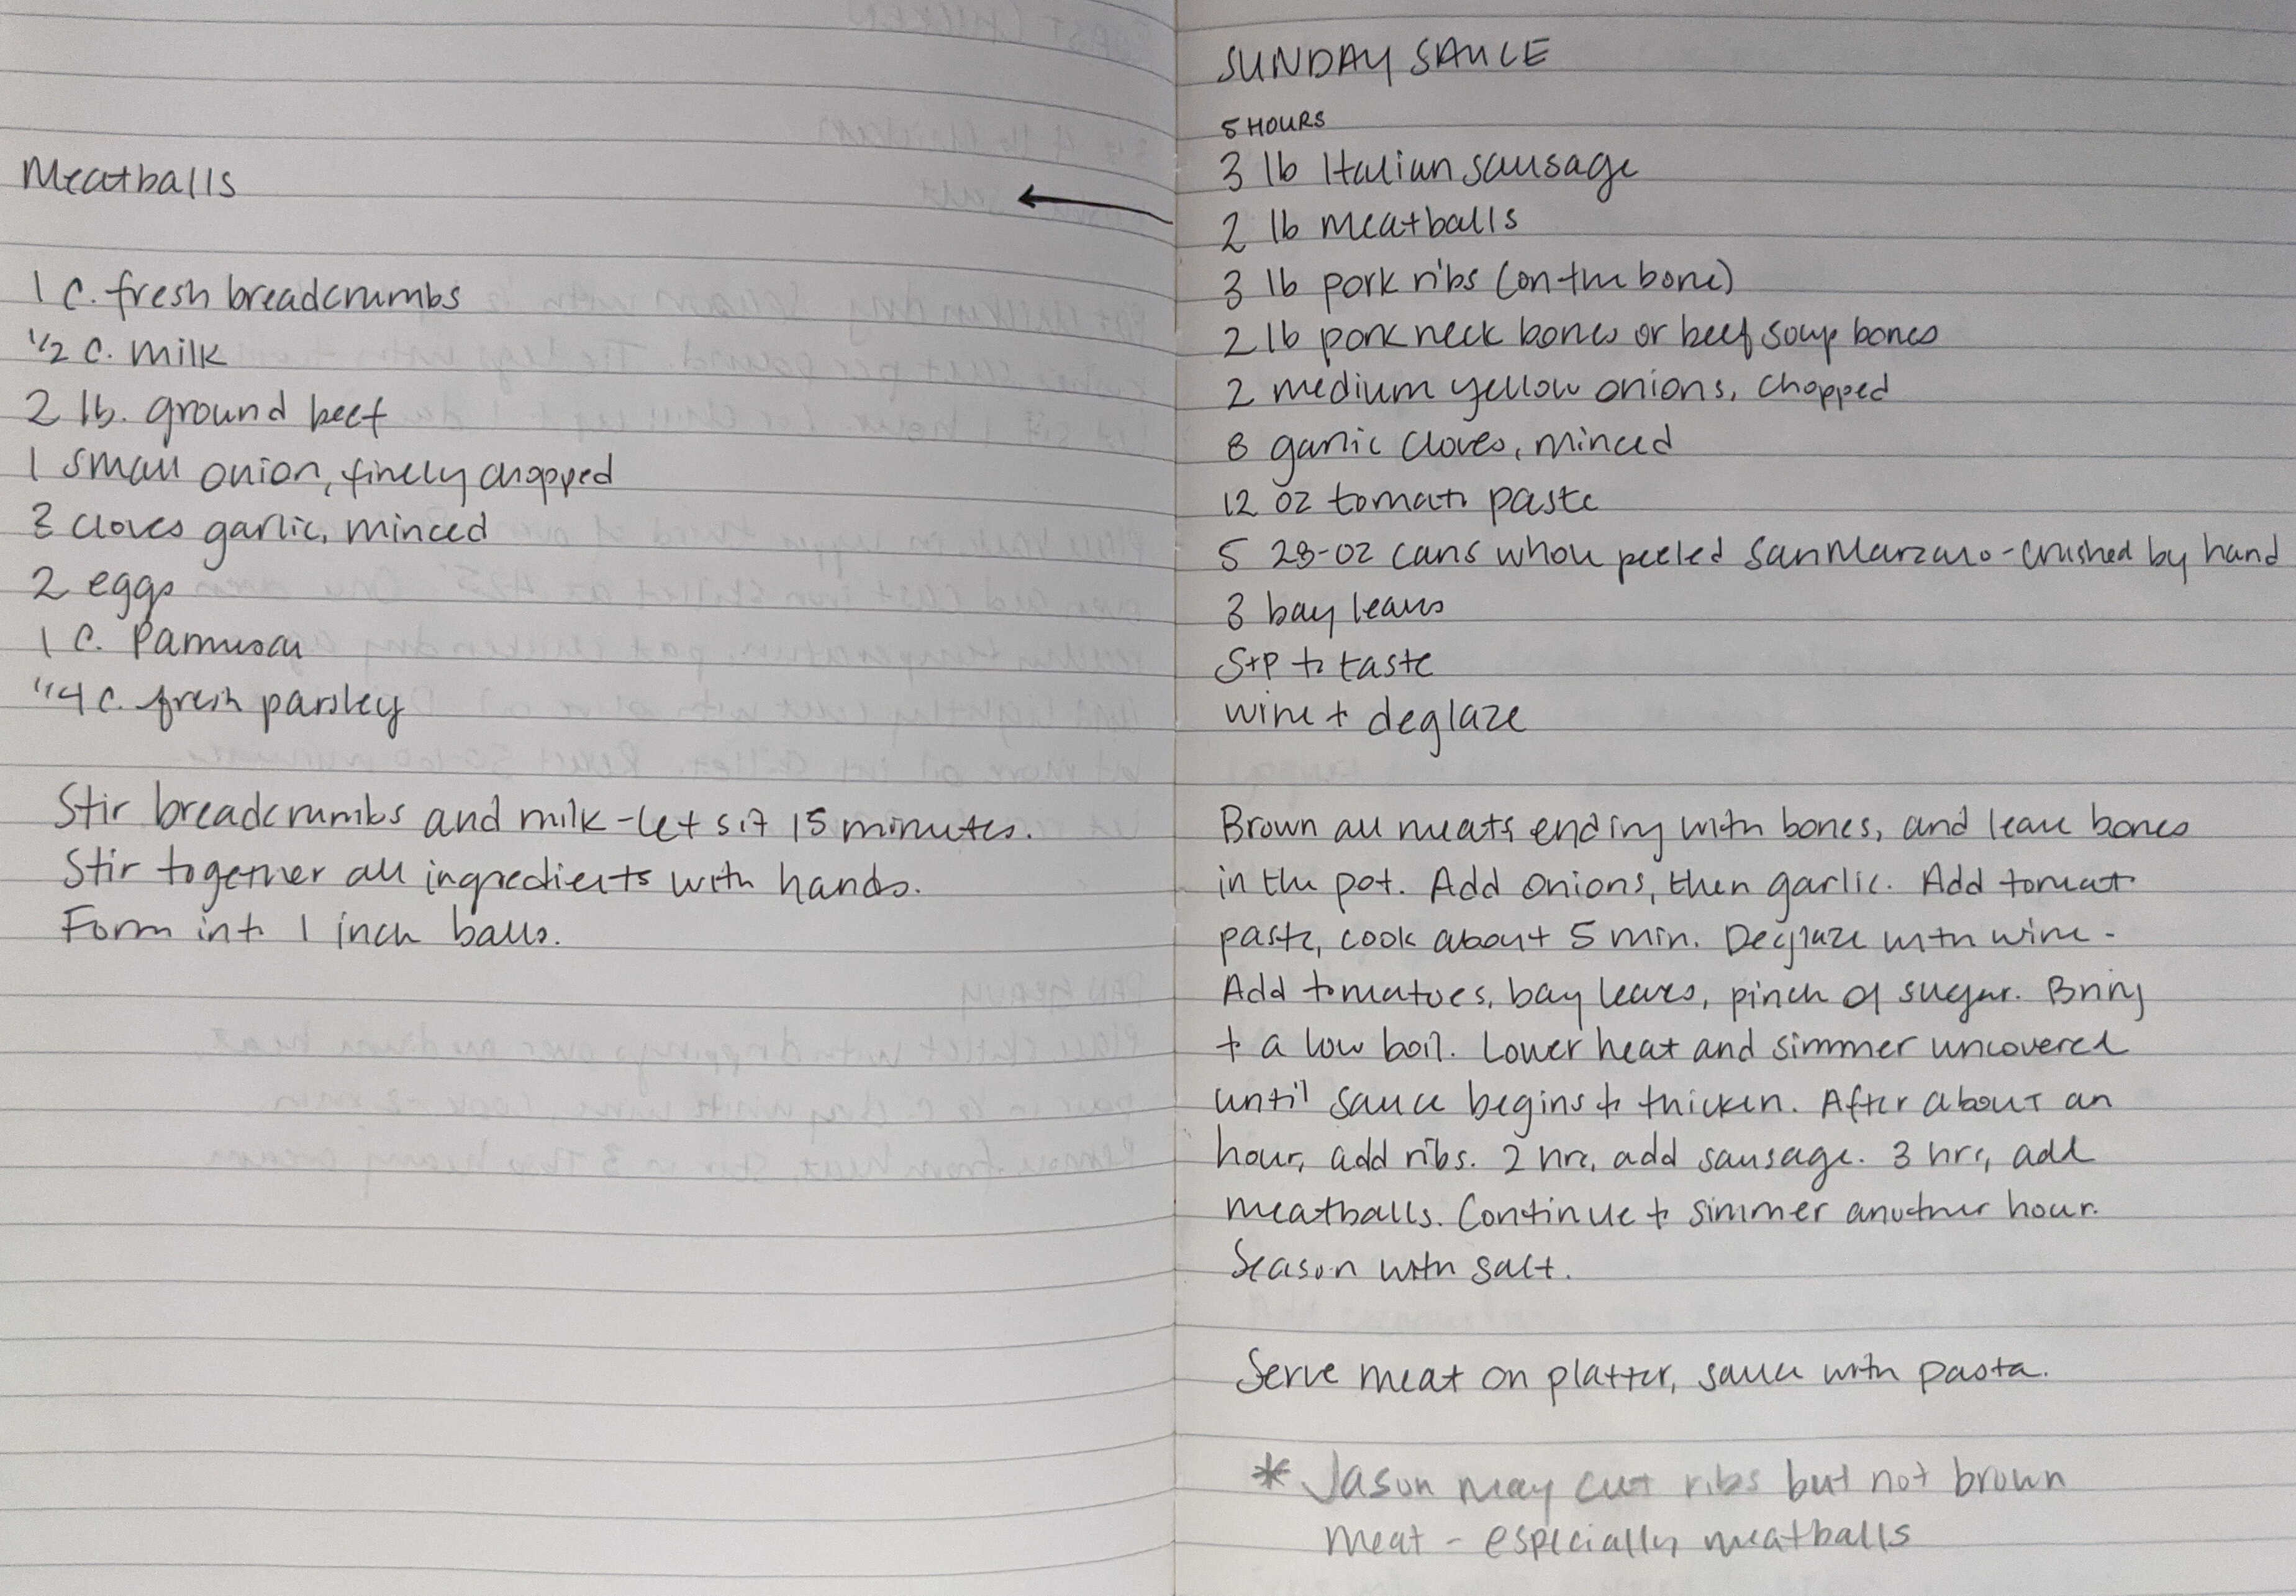 Meatballs
1 c. fresh breadcrumbs
1/2 c. milk
2 lb. ground beef
1 small onion, finely chopped
3 cloves garlic, minced
2 eggs
1 c. Parmesan
1/4 c. fresh parsley
Stir breadcrumbs and milk - let sit 15 minutes.
Stir together all ingredients with hands.
Form into 1 inch balls.
SUNDAY SAUCE
5 HOURS
3 lb Italian sausage
2 lb meatballs
3 lb pork ribs (on the bone)
2 lb pork neck bones or beef soup bones
2 medium yellow onions, chopped
8 garlic cloves, minced
12 oz tomato paste
5 28-oz cans whole peeled San Marzano - crushed by hand
3 bay leaves
S+P to taste
wine to deglaze
Brown all meats ending with bones, and leave bones
in the pot. Add onions, then garlic. Add tomato
paste, cook about 5 min. Deglaze with wine.
Add tomatoes, bay leaves, pinch of sugar. Bring
to a low boil. Lower heat and simmer uncovered
until sauce begins to thicken. After about an
hour, add ribs. 2 hrs, add sausage. 3 hrs, add
meatballs. Continue to simmer another hour.
Season with salt.
Serve meat on platter, sauce with pasta.
* Jason may cut ribs but not brown
meat - especially meatballs